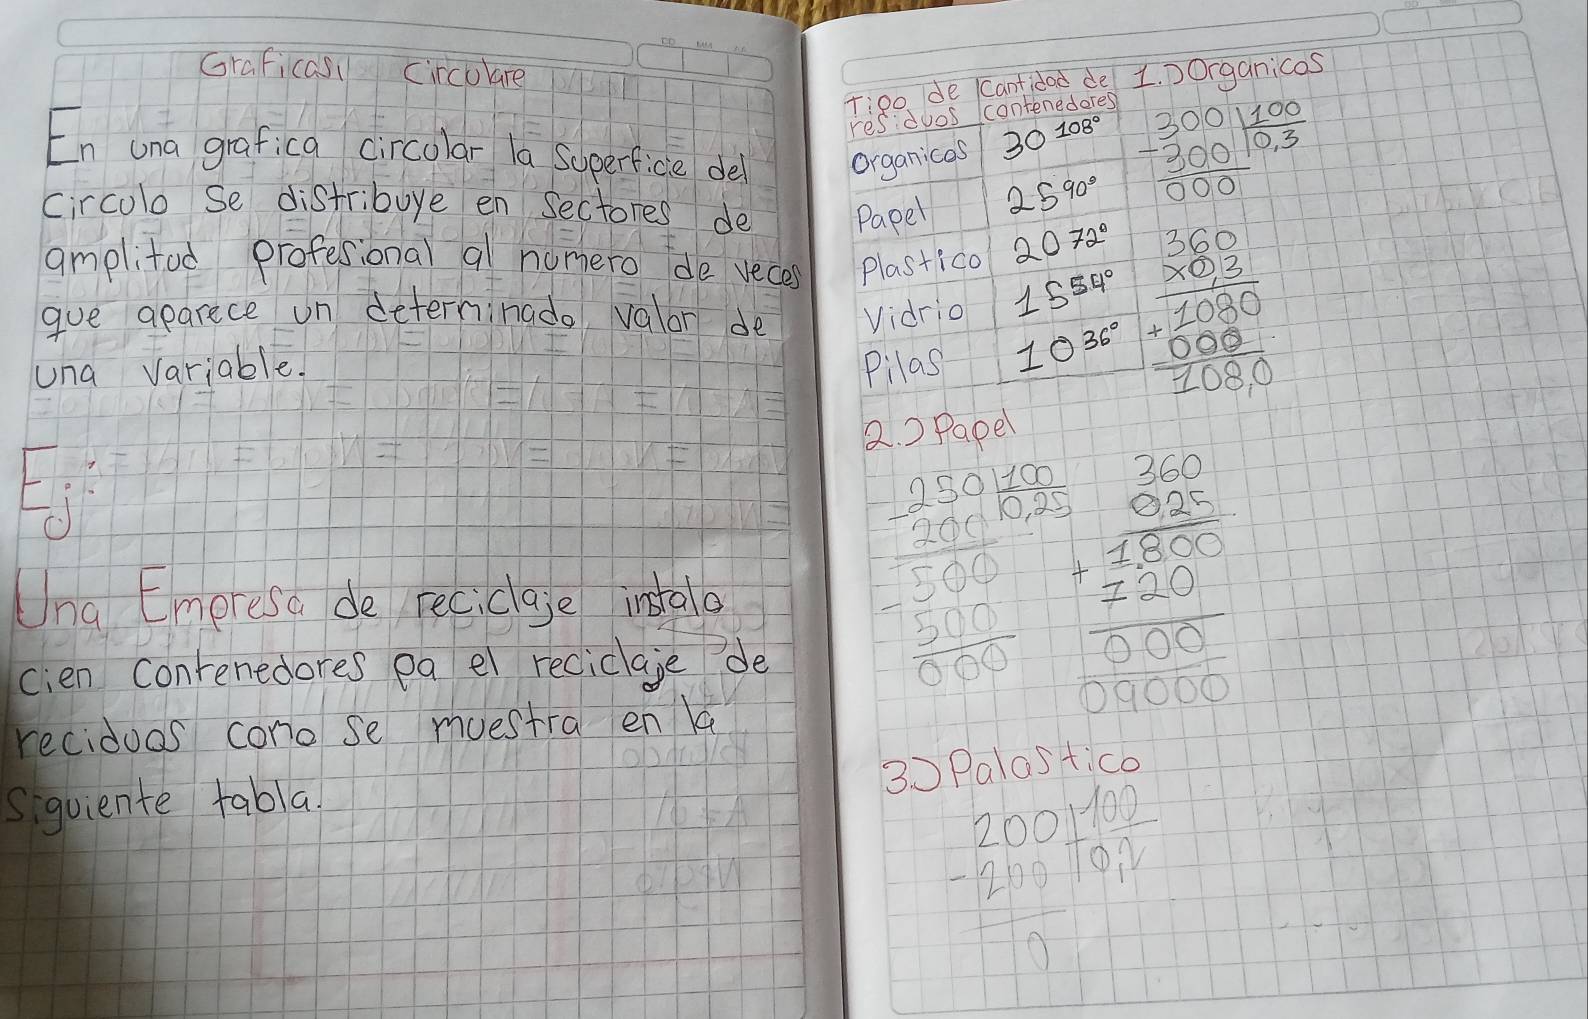 Graficas Circulare
En una grafica circular la superficie del
circulo se distribuye en sectores de
amplitud profesional al numero de veces
que aparece un determinado valor de
una variable.
Ej:
Una Empresa de reciclaje instala
cien contenedores pa el reciclaje de
reciduos como se muestra en la
siguiente tabla.
Tipo de residuos | Cantidad de contenedores
Organicos 30 108°
Papel 25 90°
Plastico 20 72°
Vidrio 15 54°
Pilas 10 36°
1.) Organicos
300 | 100
- 300 0,3
000
360
x0,3
1080
+ 000
108,0
2.) Papel
250 | 100
- 200 0,25
500
- 500
000
360
0,25
1800
+ 720
000
09000
3.) Palastico
200 | 100
- 200 0,2
0